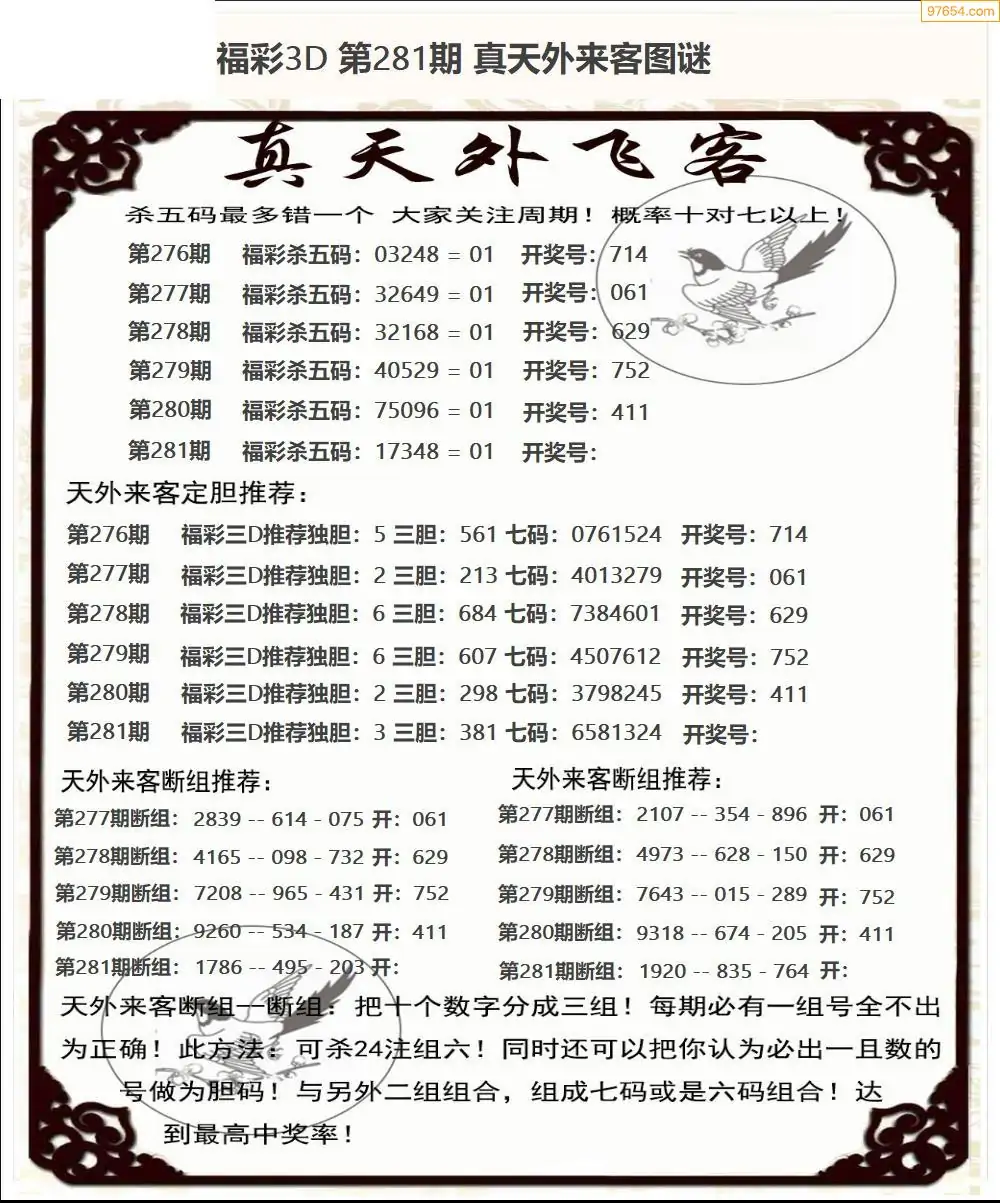 97654.com
福彩3D 第281期 真天外来客图谜
真天外飞客
杀五码最多错一个 大家关注周期！概率十对七以上！
第276期 福彩杀五码：03248 = 01 开奖号：714
第277期 福彩杀五码：32649 = 01 开奖号：061
第278期 福彩杀五码：32168 = 01 开奖号：629
第279期 福彩杀五码：40529 = 01 开奖号：752
第280期 福彩杀五码：75096 = 01 开奖号：411
第281期 福彩杀五码：17348 = 01 开奖号：
天外来客定胆推荐：
第276期 福彩三D推荐独胆：5 三胆：561 七码：0761524 开奖号：714
第277期 福彩三D推荐独胆：2 三胆：213 七码：4013279 开奖号：061
第278期 福彩三D推荐独胆：6 三胆：684 七码：7384601 开奖号：629
第279期 福彩三D推荐独胆：6 三胆：607 七码：4507612 开奖号：752
第280期 福彩三D推荐独胆：2 三胆：298 七码：3798245 开奖号：411
第281期 福彩三D推荐独胆：3 三胆：381 七码：6581324 开奖号：
天外来客断组推荐：
第277期断组：2839 -- 614 - 075 开：061
第278期断组：4165 -- 098 - 732 开：629
第279期断组：7208 -- 965 - 431 开：752
第280期断组：9260 -- 534 - 187 开：411
第281期断组：1786 -- 495 - 203 开：
天外来客断组推荐：
第277期断组：2107 -- 354 - 896 开：061
第278期断组：4973 -- 628 - 150 开：629
第279期断组：7643 -- 015 - 289 开：752
第280期断组：9318 -- 674 - 205 开：411
第281期断组：1920 -- 835 - 764 开：
天外来客断组一断组：把十个数字分成三组！每期必有一组号全不出
为正确！此方法：可杀24注组六！同时还可以把你认为必出一且数的
号做为胆码！与另外二组组合，组成七码或是六码组合！达
到最高中奖率！